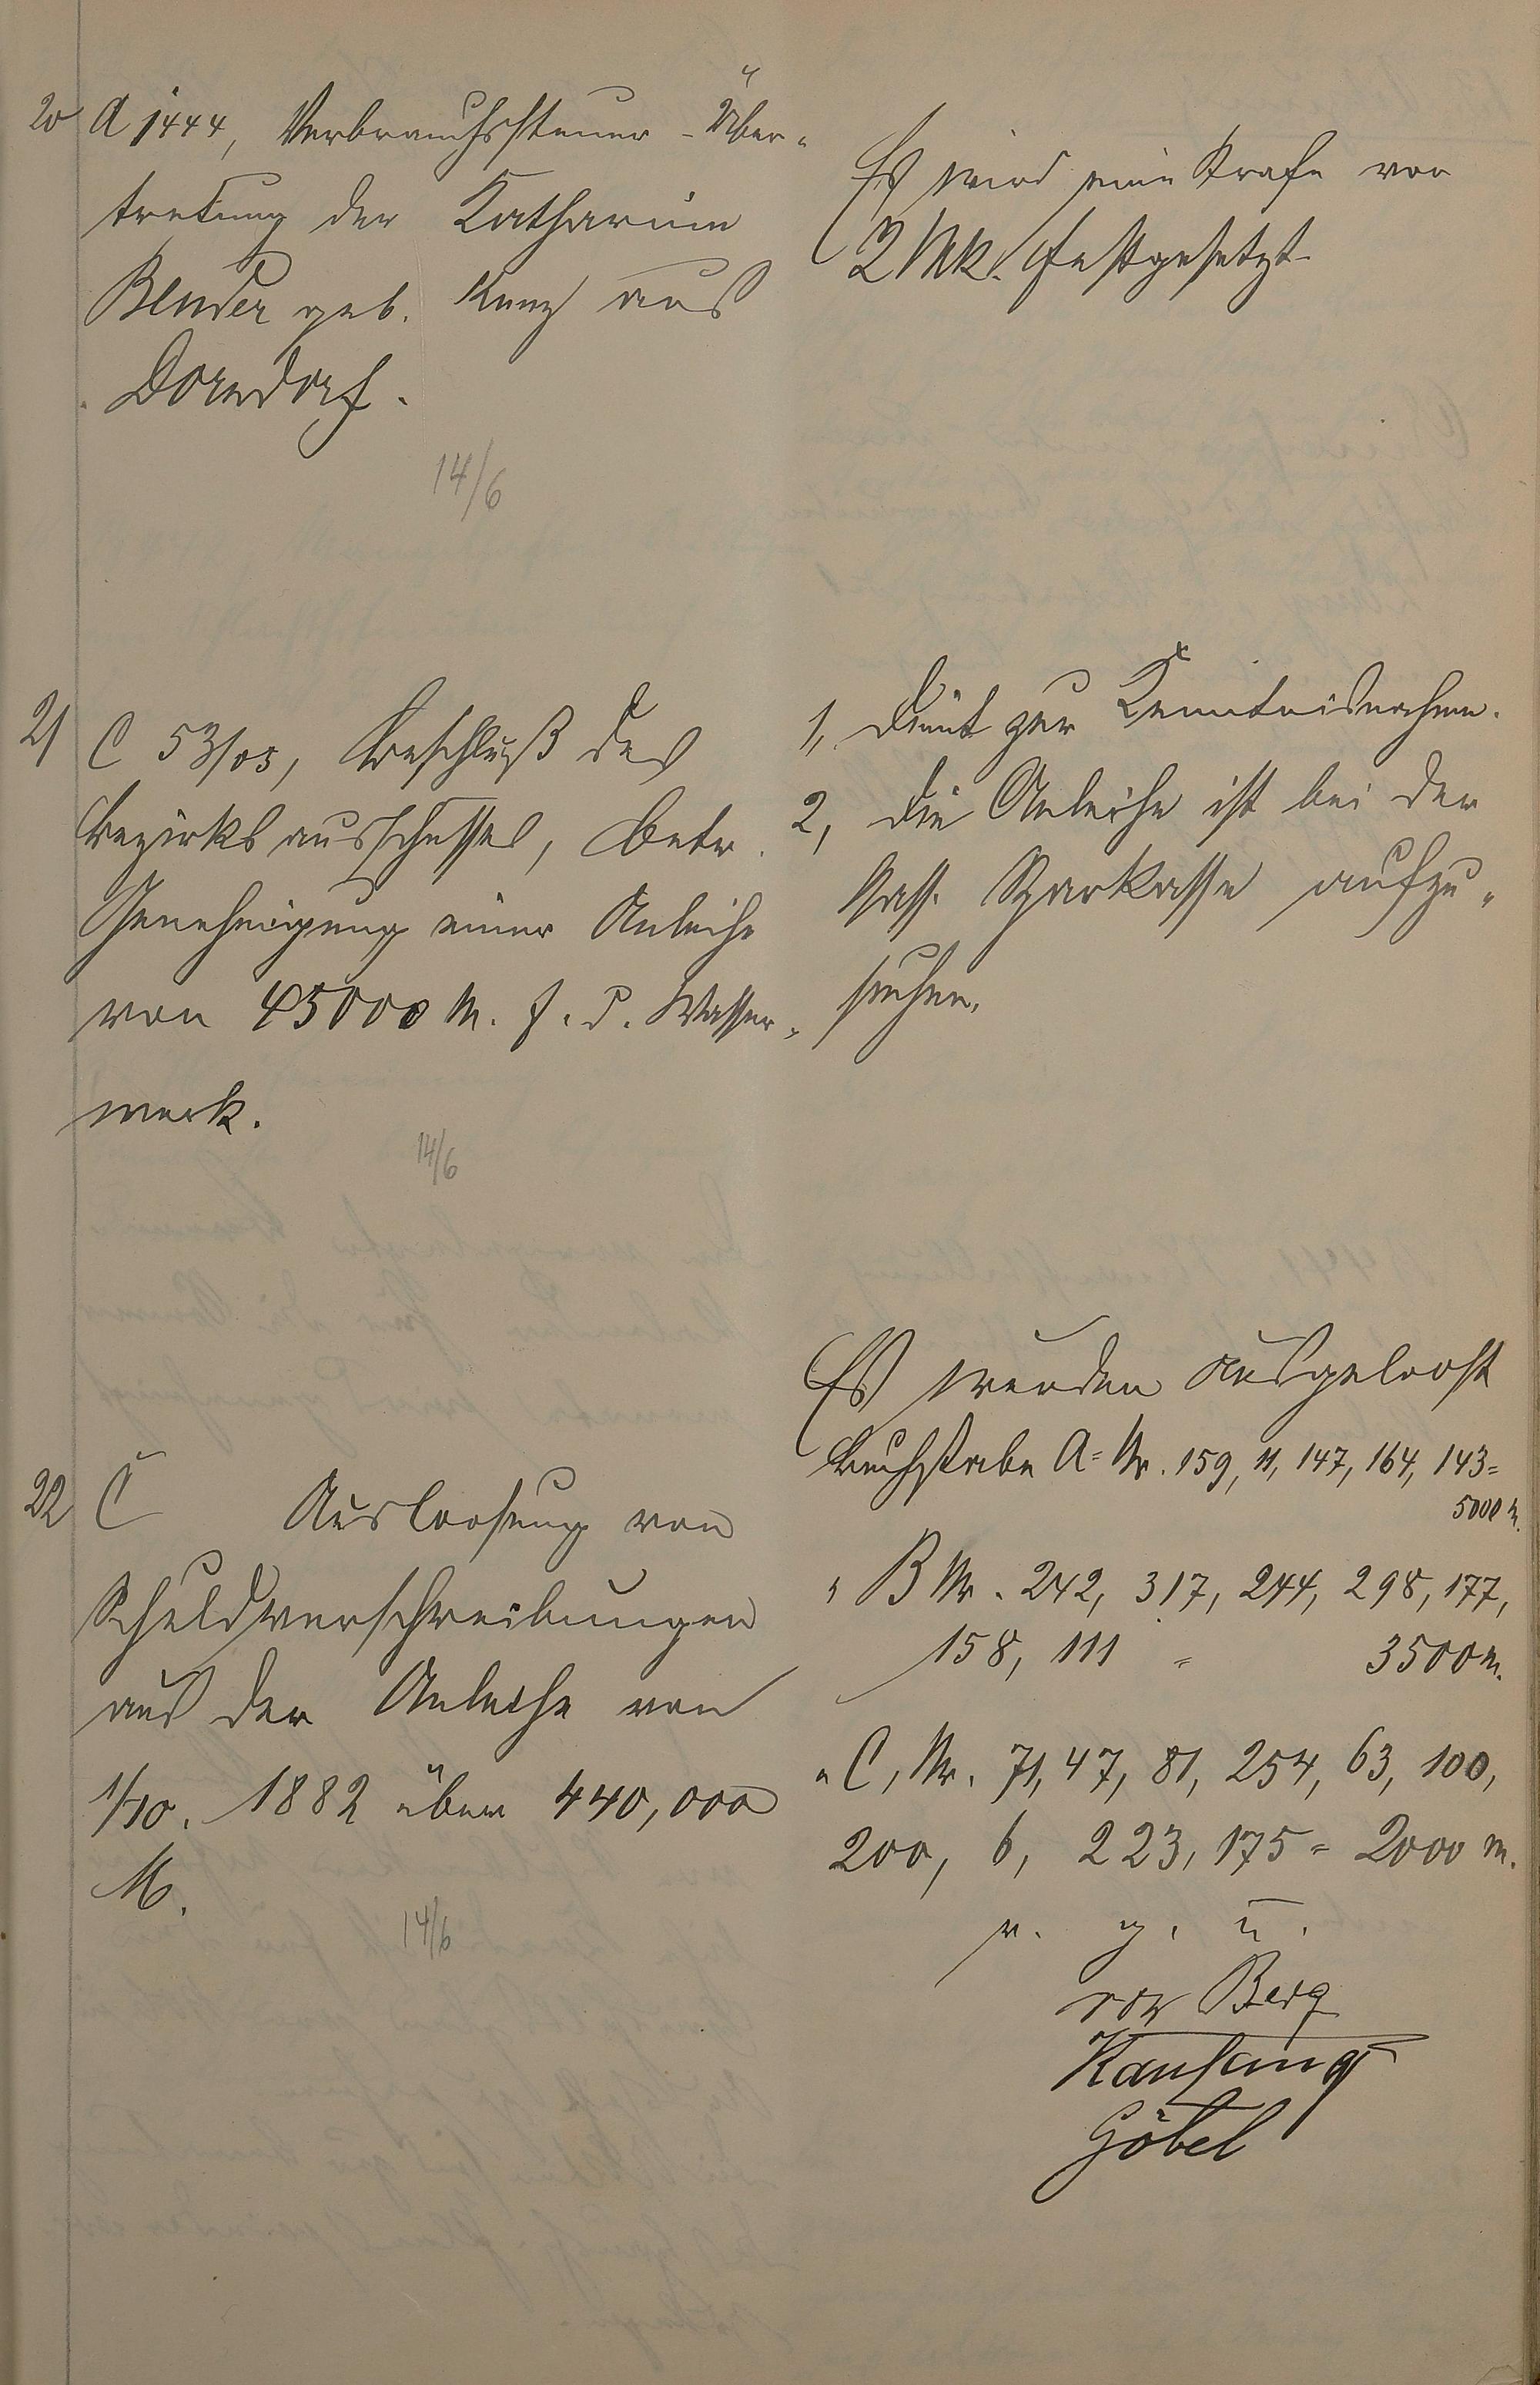 20 A 1444, Verbrauchssteuer-Über-
tretung der Katharina
Bender geb. Kunz aus
Dorndorf.
14/6
Es wird eine Strafe von
2 Mk. festgesetzt.
21 C 53/03, Beschluß des
Bezirksausschusses, betr.
Genehmigung einer Anleihe
von 45000 M. f. d. Wasser-
werk.
14/6
1, Dient zur Kenntnisnahme.
2, Die Anleihe ist bei der
Nass. Sparkasse aufzu-
nehmen.
22 C Ausloosung von
Schuldverschreibungen
aus der Anleihe von
1/10. 1882 über 440,000
M.
14/6
Es wurden ausgeloost
Buchstabe A = Nr. 159, 11, 147, 164, 143 =
5000 M.
" B Nr. 242, 317, 244, 298, 177,
158, 111 = 3500 M.
" C, Nr. 71, 47, 81, 254, 63, 100,
200, 6, 223, 175 = 2000 M.
v. g. u.
von Berg
Kaufung
Göbel